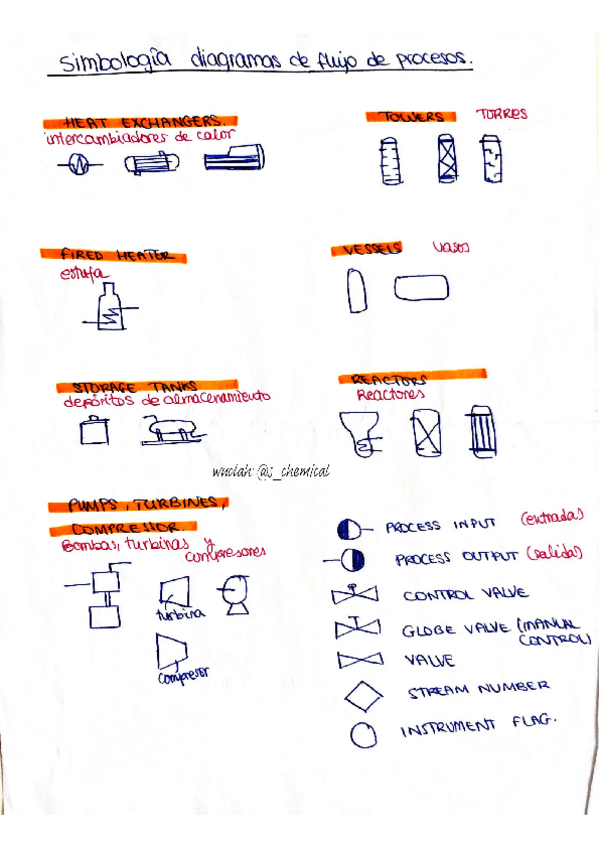 Simbología diagramas de flujo de procesos.
HEAT EXCHANGERS.
intercambiadores de calor
TOWERS TORRES
FIRED HEATER
estufa
VESSELS vasos
STORAGE TANKS
depósitos de almacenamiento
REACTORS
Reactores
wuolah: @s_chemical
PUMPS, TURBINES,
COMPRESSOR.
Bombas, turbinas y
compresores
turbina
compresor
PROCESS INPUT (entradas)
PROCESS OUTPUT (salida)
CONTROL VALVE
GLOBE VALVE (MANUAL
CONTROL)
VALVE
STREAM NUMBER
INSTRUMENT FLAG.